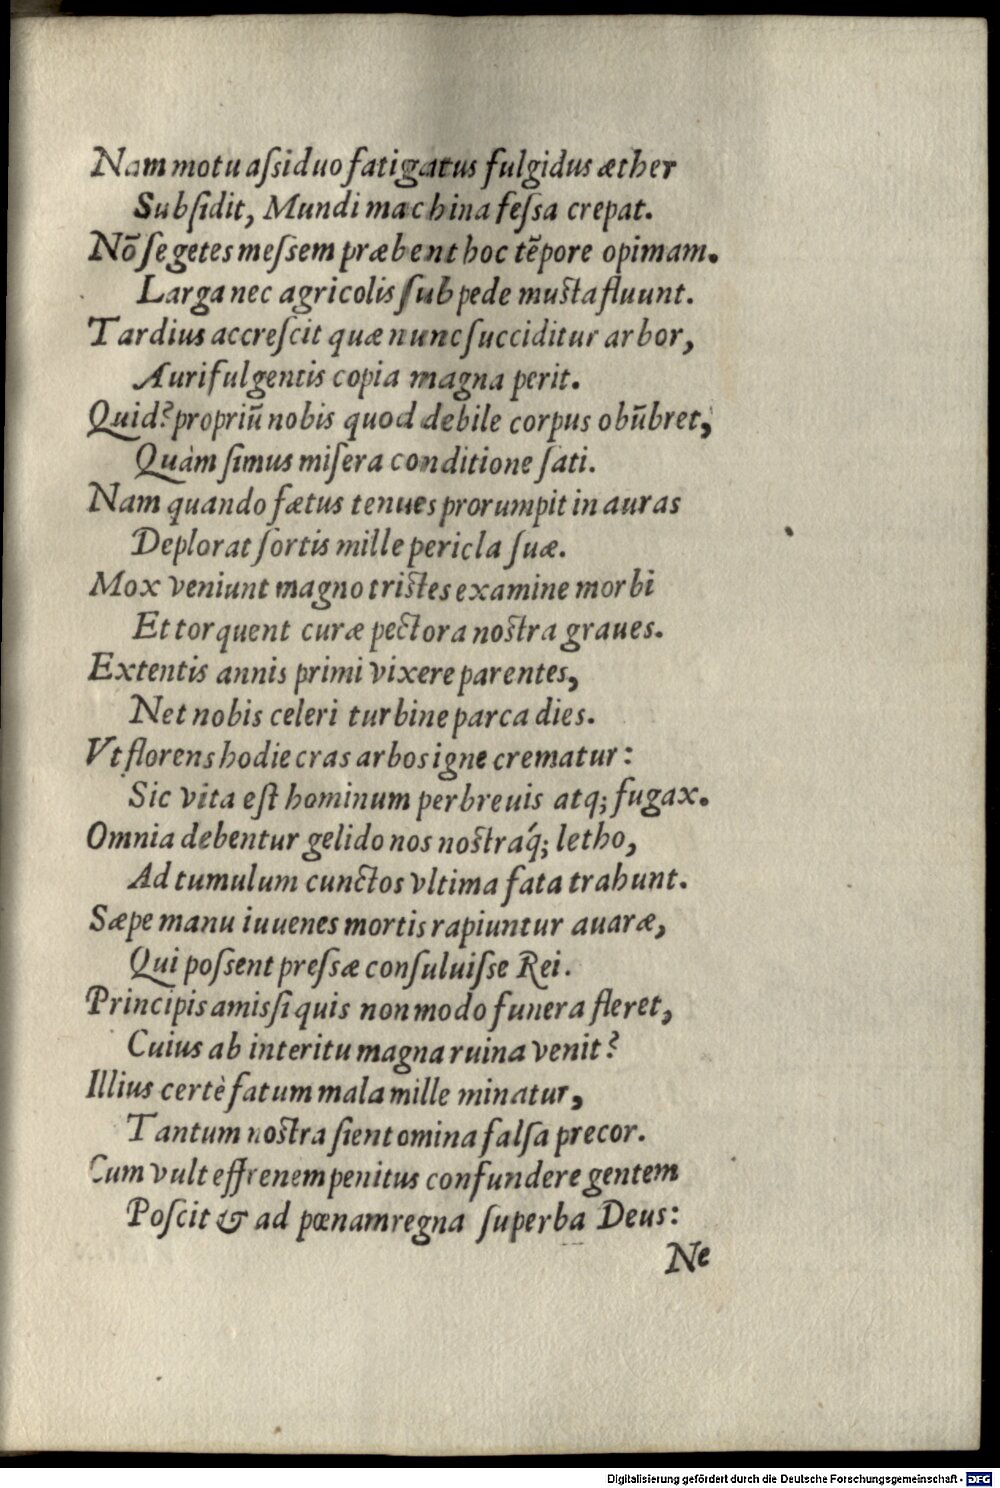 Nam motu aſsiduo fatigatus fulgidus æther
Subſidit, Mundi machina feſsa crepat.
Nō ſegetes meſsem præbent hoc tēpore opimam.
Larga nec agricolis ſub pede muſta fluunt.
Tardius accreſcit quæ nunc ſucciditur arbor,
Auri fulgentis copia magna perit.
Quid? propriū nobis quod debile corpus obūbret,
Quàm ſimus miſera conditione ſati.
Nam quando fœtus tenues prorumpit in auras
Deplorat ſortis mille pericla ſuæ.
Mox veniunt magno triſtes examine morbi
Et torquent curæ pectora noſtra graues.
Extentis annis primi vixere parentes,
Net nobis celeri turbine parca dies.
Vt florens hodie cras arbos igne crematur:
Sic vita eſt hominum perbreuis atq; fugax.
Omnia debentur gelido nos noſtraq́; letho,
Ad tumulum cunctos vltima fata trahunt.
Sæpe manu iuuenes mortis rapiuntur auaræ,
Qui poſsent preſsæ conſuluiſse Rei.
Principis amiſsi quis non modo funera fleret,
Cuius ab interitu magna ruina venit?
Illius certè fatum mala mille minatur,
Tantum noſtra ſient omina falſa precor.
Cum vult effrenem penitus confundere gentem
Poſcit & ad pœnam regna ſuperba Deus:
Ne
Digitalisierung gefördert durch die Deutsche Forschungsgemeinschaft - DFG